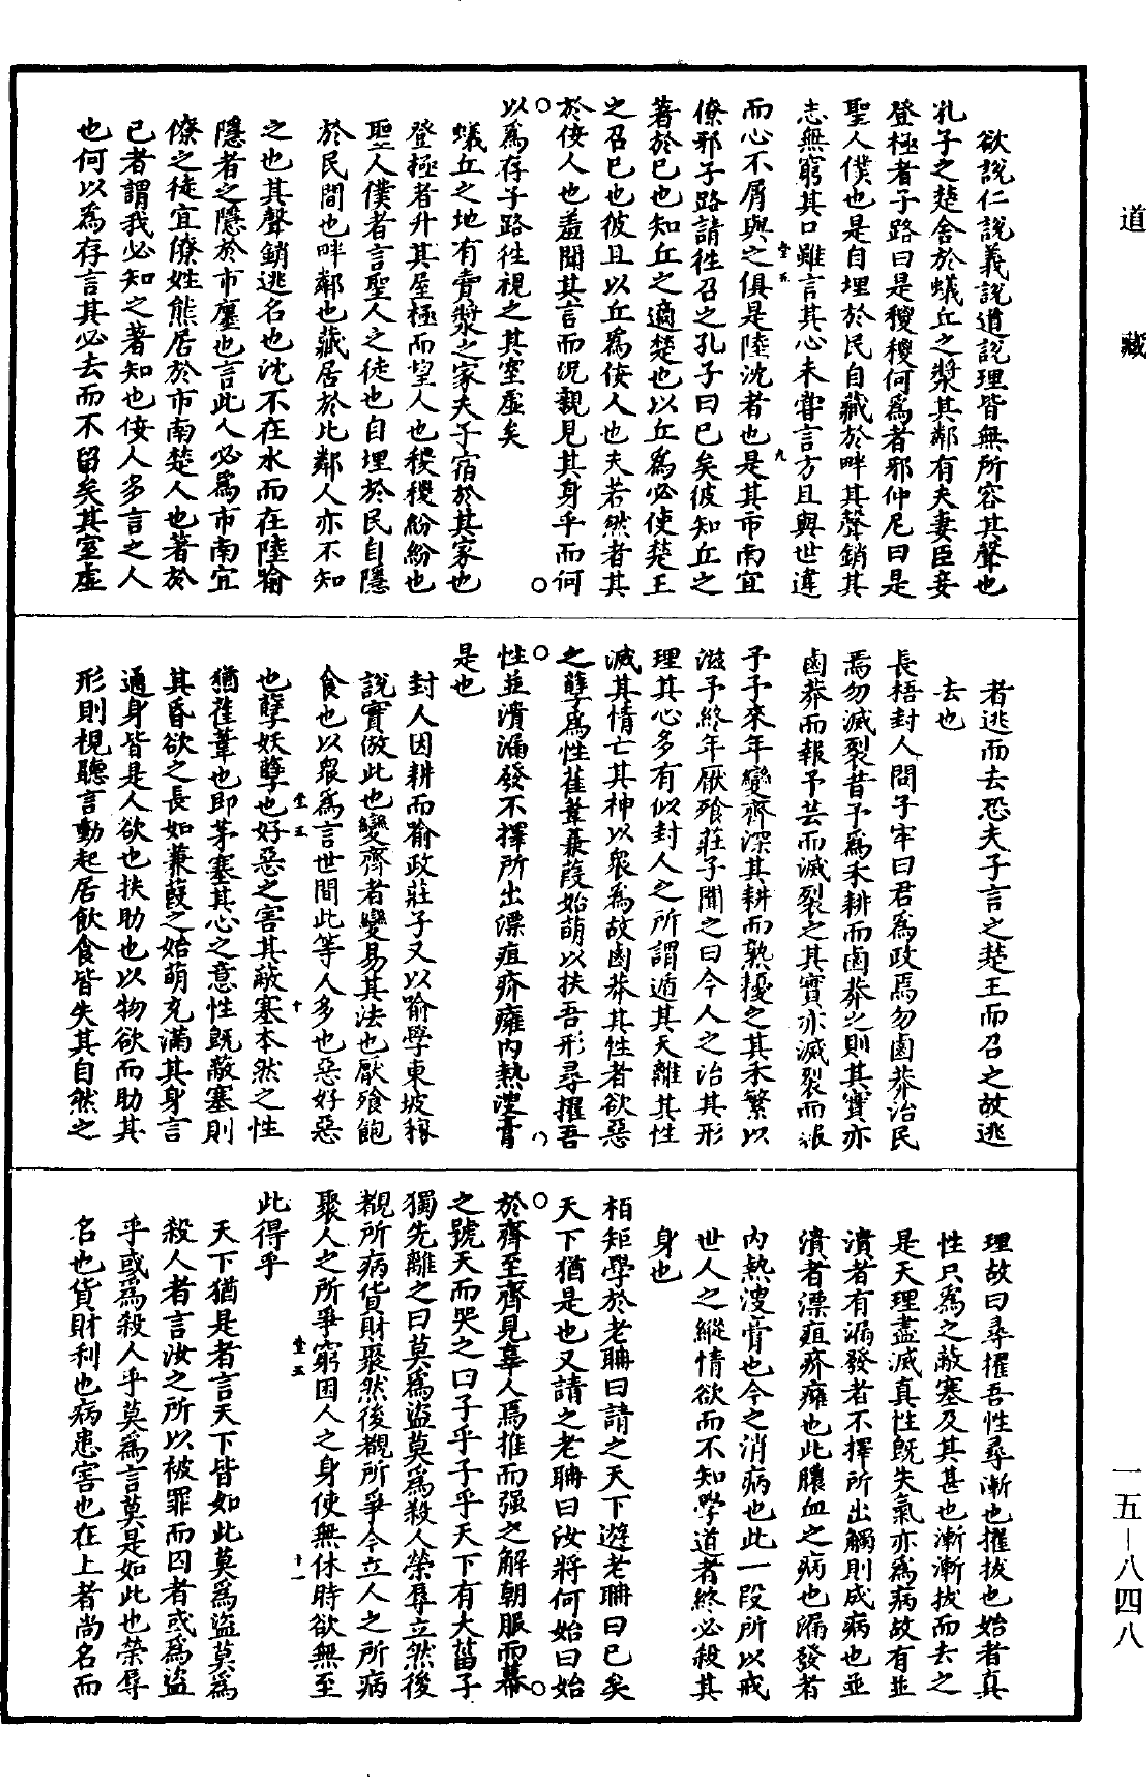 道藏
欲說仁說義說道說理皆無所容其聲也
孔子之楚舍於蟻丘之漿其鄰有夫妻臣妾
登極者子路曰是稯稯何為者邪仲尼曰是
聖人僕也是自埋於民自藏於畔其聲銷其
志無窮其口雖言其心未嘗言方且與世違
而心不屑與之俱是陸沈者也是其市南宜
僚邪子路請徃召之孔子曰已矣彼知丘之
著於已也知丘之適楚也以丘為必使楚王
之召已也彼且以丘為佞人也夫若然者其
於佞人也羞聞其言而況親見其身乎而何
以為存子路徃視之其室虛矣
蟻丘之地有賣漿之家夫子宿於其家也
登極者升其屋極而望人也稯稯紛紛也
聖人僕者言聖人之徒也自埋於民自隱
於民間也畔鄰也藏居於比鄰人亦不知
之也其聲銷逃名也沈不在水而在陸喻
隱者之隱於市廛也言此人必為市南宜
僚之徒宜僚姓熊居於市南楚人也著於
已者謂我必知之著知也佞人多言之人
也何以為存言其必去而不留矣其室虛
者逃而去恐夫子言之楚王而召之故逃
去也
長梧封人問子牢曰君為政焉勿鹵莽治民
焉勿滅裂昔予為禾耕而鹵莽之則其實亦
鹵莽而報予芸而滅裂之其實亦滅裂而報
予予來年變齊深其耕而熟擾之其禾繁以
滋予終年厭飧莊子聞之曰今人之治其形
理其心多有似封人之所謂遁其天離其性
滅其情亡其神以眾為故鹵莽其性者欲惡
之孽為性萑葦蒹葭始萌以扶吾形尋擢吾
性並潰漏發不擇所出漂疽疥癰內熱溲膏
是也
封人因耕而喻政莊子又以喻學東坡稼
說實倣此也變齊者變易其法也厭飧飽
食也以眾為言世間此等人多也惡好惡
也孽妖孽也好惡之害其蔽塞本然之性
猶萑葦也即茅塞其心之意性既蔽塞則
其昏欲之長如蒹葭之始萌充滿其身言
通身皆是人欲也扶助也以物欲而助其
形則視聽言動起居飲食皆失其自然之
理故曰尋擢吾性尋漸也擢拔也始者真
性只為之蔽塞及其甚也漸漸拔而去之
是天理盡滅真性既失氣亦為病故有並
潰者有漏發者不擇所出觸則成病也並
潰者漂疽疥癰也此膿血之病也漏發者
內熱溲膏也今之消病也此一段所以戒
世人之縱情欲而不知學道者終必殺其
身也
栢矩學於老聃曰請之天下遊老聃曰已矣
天下猶是也又請之老聃曰汝將何始曰始
於齊至齊見辜人焉推而强之解朝服而幕
之號天而哭之曰子乎子乎天下有大菑子
獨先離之曰莫為盜莫為殺人榮辱立然後
覩所病貨財聚然後覩所爭今立人之所病
聚人之所爭窮困人之身使無休時欲無至
此得乎
天下猶是者言天下皆如此莫為盜莫為
殺人者言汝之所以被罪而囚者或為盜
乎或為殺人乎莫為言莫是如此也榮辱
名也貨財利也病患害也在上者尚名而
一五—八四八